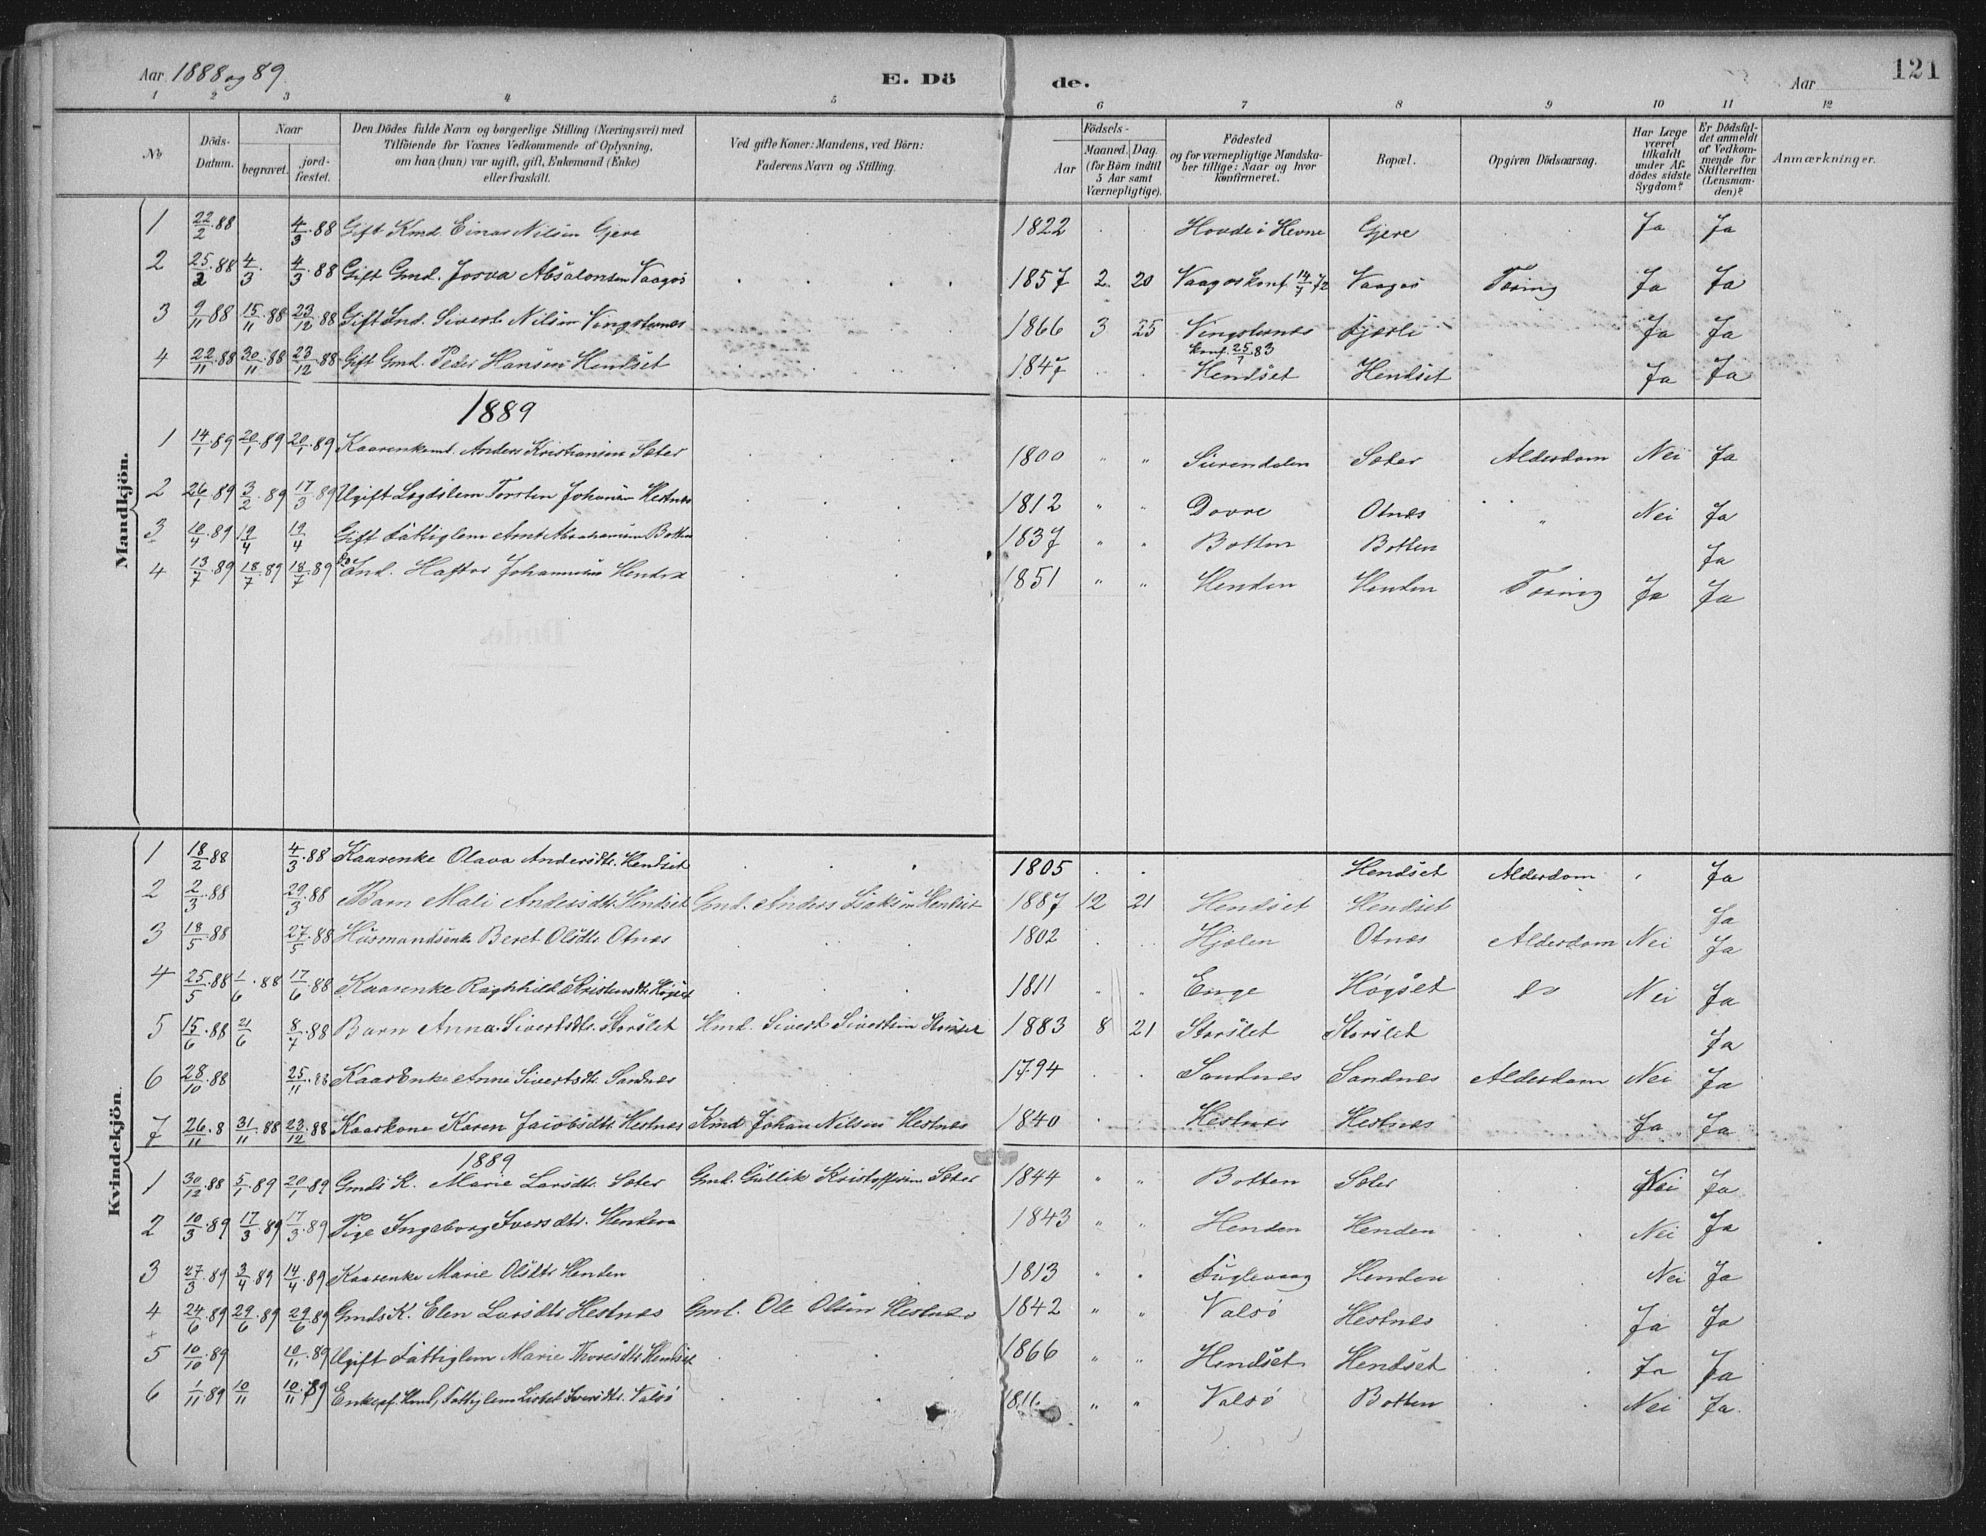 Aar 1888 og 89. E. Dö de. Aar 121
1 2 3 4 5 6 7 8 9 10 11 12
№ Döds-Datum. Naar begravet. jord-fæstet. Den Dödes fulde Navn og borgerlige Stilling (Næringsvei) med Tilföiende for Voxnes Vedkommende af Oplysning, om han (hun) var ugift, gift, Enkemand (Enke) eller fraskilt. Ved gifte Koner: Mandens, ved Börn: Faderens Navn og Stilling. Födsels- Aar Maaned. Dag. (for Börn indtil 5 Aar samt Værnepligtige). Födested og for værnepligtige Mandskaber tillige: Naar og hvor konfirmeret. Bopæl. Opgiven Dödsaarsag. Har Læge været tilkaldt under Afdödes sidste Sygdom? Er Dödsfaldet anmeldt af Vedkommende for Skifteretten (Lensmanden)? Anmærkninger.
Mandkjön.
1 22/2.88 4/3.88 Gift Kmd. Einar Nilsen Gjere 1822 Hovde i Hevne Gjere Ja Ja
2 25/2.88 4/3. 4/3.88 Gift Gmd. Josva Absalonsen Vaagos 1857 2. 20 Vaagos konf 14/7 72 Vaagos Tæring Ja Ja
3 9/11 88 15/11.88 23/12.88 Gift Ind. Sivert Nilsen Vingsternes 1866 3 25 Vingsternes konf. 25/7 83 Fjærli Ja Ja
4 22/11.88 30/11.88 23/12.88 Gift Gmd. Peder Hansen Hendset 1847 Hendset Hendset Ja Ja
1889
1 14/1.89 20/1.89 20/1.89 Kaarenkemd. Anders Kristiansen Sæter 1800 " " Surendalen Sæter Alderdom Nei Ja
2 26/1.89 3/2.89 17/3.89 Ugift Lægdslem Torsten Johansen Hestnes 1812 " " Dovre Otnes " Nei Ja
3 10/4.89 19/4 19/4 Gift Fattiglem Arnt Abrahamsen Botten 1837 " " Botten Botten Ja
4 13/7.89 18/7.89 18/7.89 Do Ind. Haftor Johannesen Henden 1851 " " Henden Henden Tæring Ja Ja
Kvindekjön.
1 18/2 88 4/3.88 Kaarenke Olava Andersdtr. Hendset 1805 Hendset Alderdom Ja
2 2/3.88 29/3.88 Barn Mali Andersdtr. Hendset Gmd. Anders Isaksen Hendset 1887 12 21 Hendset Hendset Ja
3 18/5.88 27/5.88 Husmandsenke Beret Olsdtr. Otnes 1802 Hjelen Otnes Alderdom Nei Ja
4 25/5.88 1/6.88 17/6.88 Kaarenke Raghnild Kristensdtr. Høgset 1811 Enge Høgset do Nei Ja
5 15/6.88 21/6 8/7.88 Barn Anna Sivertsdtr. Storslet Hmd. Sivert Sivertsen Storslet 1883 8 21 Storslet Storslet Ja
6 28/10.88 25/11.88 KaarEnke Anne Sivertsdtr. Sandnes 1794 Sandnes Sandnes Alderdom Nei Ja
7 26/11.8 31/11.88 23/12.88 Kaarkone Karen Jacobsdtr. Hestnes Kmd Johan Nilsen Hestnes 1840 Hestnes Hestnes Ja Ja
1889
1 30/12.88 5/1.89 20/1.89 Gmds K. Marie Larsdtr. Sæter Gmd. Gullik Kristoffersen Sæter 1844 " " Botten Sæter Nei Ja
2 10/3.89 17/3.89 17/3.89 Pige Ingeborg Iversdtr. Henden 1843 " " Henden Henden Nei Ja
3 27/3.89 3/4.89 14/4.89 Kaarenke Marie Olsdtr. Henden 1813 " " Fuglevaag Henden Nei Ja
4 24/6.89 29/6.89 29/6.89 Gmds K. Elen Larsdtr. Hestnes Gmd. Ole Olsen Hestnes 1842 " " Valsø Hestnes Ja Ja
5 10/10.89 10/11.89 Ugift Fattiglem Marie Thoresdtr. Hendset 1866 " " Hendset Hendset Ja Ja
6 1/11.89 10/11 10/11.89 Enke ef. Hmd, Fattiglem Lisbet Iversdtr. Valsø 1811 " " Valsø Botten Nei Ja.